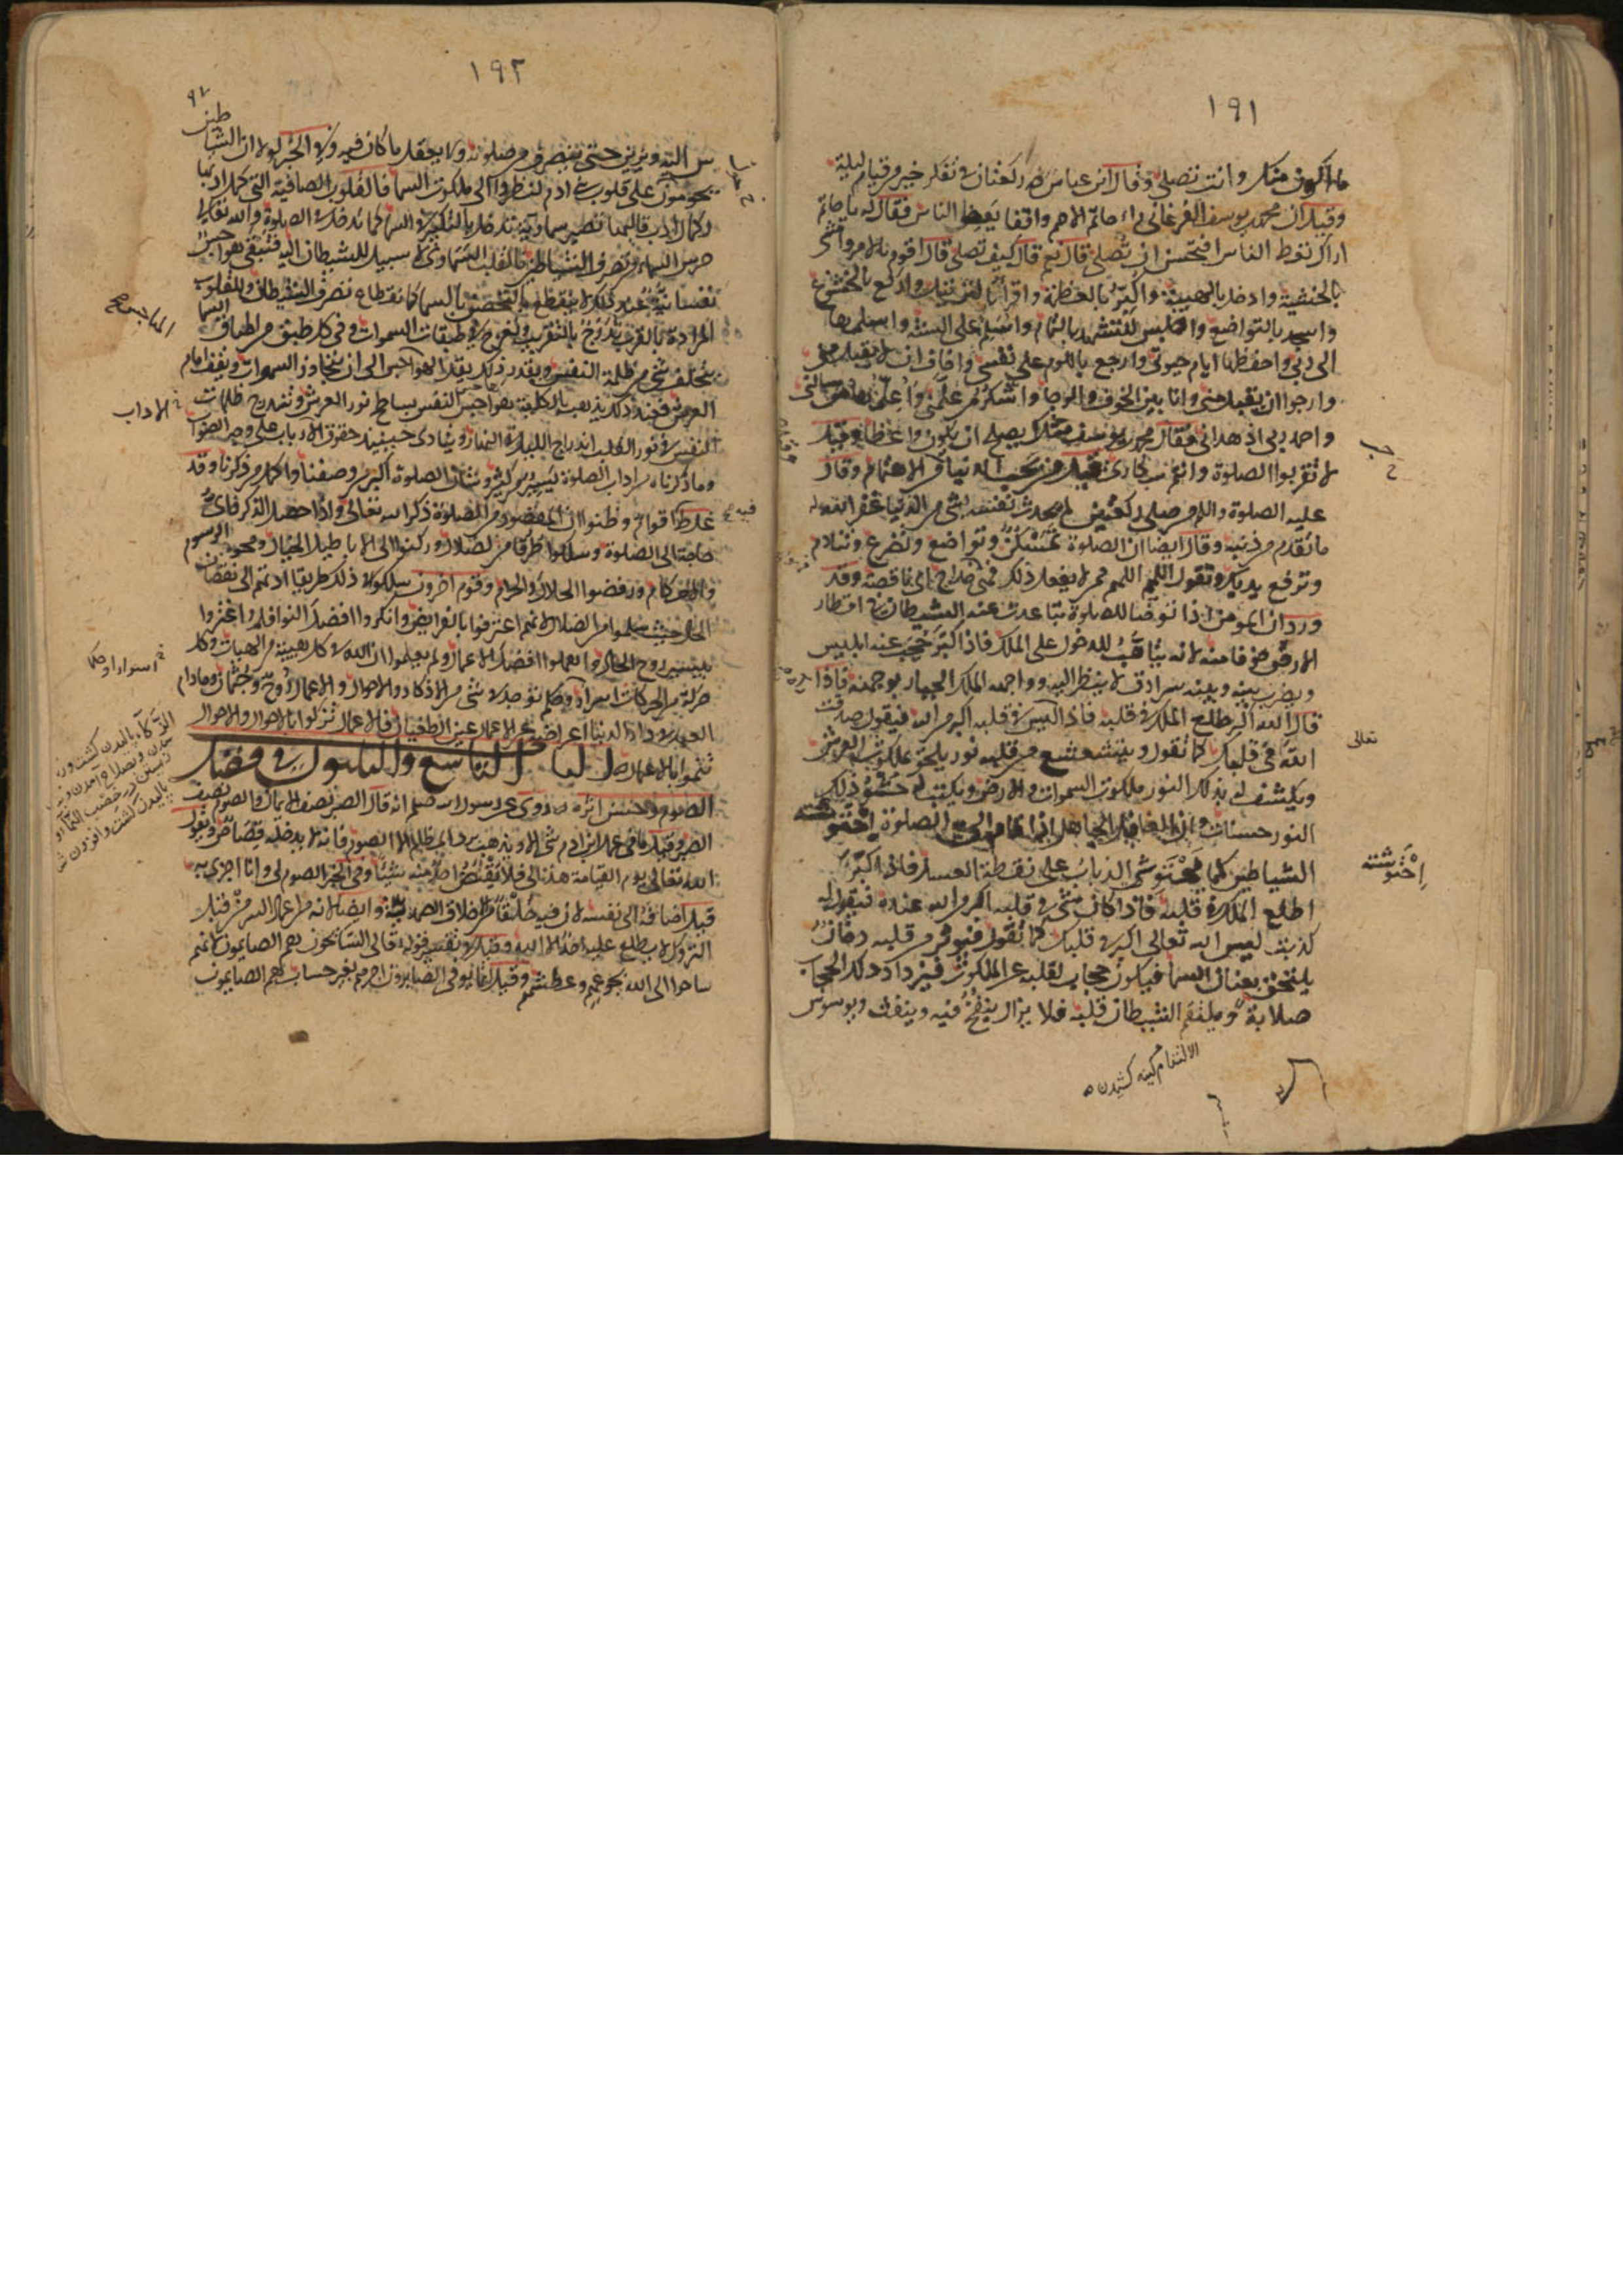 ١٩١
ما اكون منك وانت تصلي وقال ابن عباس رض ركعتان في تفكر خير من قيام ليلة
وقيل ان محمد بن يوسف الفرغاني راى حاتم الاصم واقفا يعظ الناس فقال له يا حاتم
اراك تعظ الناس افتحسن ان تصلي قال نعم قال كيف تصلي قال اقوم بالامر وامشي
بالخشية وادخل بالهيبة واكبر بالعظمة واقرا بالترتيل واركع بالخشوع
واسجد بالتواضع واجلس للتشهد بالتمام واسلم على السنة واسلمها
الى ربي واحفظها ايام حيوتي وارجع باللوم على نفسي واخاف ان لا يقبل مني
وارجوا ان يقبل مني وانا بين الخوف والرجا واشكر من علمني واعلم من سالني
واحمد ربي اذ هداني فقال محمد بن يوسف مثلك يصلح ان يكون واعظا وقيل
لا تقربوا الصلوة وانتم سكارى قيل من حب الدنيا وقيل من الاهتمام وقال
عليه الصلوة والسلم من صلى ركعتين لم يحدث نفسه بشي من الدنيا غفر الله له
ما تقدم من ذنبه وقال ايضا ان الصلوة تمسكن وتواضع وتضرع وتنادم
وترفع يديك وتقول اللهم اللهم فمن لا يفعل ذلك فهي خداج اي ناقصة وقد
ورد ان المومن اذا توضا للصلوة تباعدت عنه الشيطان في اقطار
الارض خوفا منه لانه يتاهب للدخول على الملك فاذا كبر حجب عنه ابليس
ويضرب بينه وبينه سرادق لا ينظر اليه وواجهه الملك الجبار بوجهه فاذا
قال الله اكبر طلع الملك في قلبه فاذا ليس في قلبه اكبر من الله فيقول صدقت
تعالى
الله في قلبك كما تقول ويتشعشع من قلبه نور يلحق بملكوت العرش
ويكشف له بذلك النور ملكوت السموات والارض ويكتب له حشو ذلك
النور حسنات وان الغافل الجاهل اذا قام الى الصلوة احتوشته
الشياطين كما يحتوش الذباب على نقطة العسل فاذا كبر
احتوشته
اطلع الملك في قلبه فاذا كان شي في قلبه اكبر من الله عنده فيقول له
كذبت ليس الله تعالى اكبر في قلبك كما تقول فيثور من قلبه دخان
يلتحق بعنان السما فيكون حجاب لقلبه عن الملكوت فيزداد ذلك الحجاب
صلابة ويلتقم الشيطان قلبه فلا يزال ينفخ فيه وينفث ويوسوس
١٩٢
اليه ويزين حتى ينصرف من صلوته ولا يعقل ما كان فيه وفي الخبر لولا ان الشياطين
يحومون على قلوب بني ادم لنظروا الى ملكوت السما فالقلوب الصافية التي كمل ادبها
وكمال ادب قالبها تصير سماوية تدخل بالتكبير في السما كما تدخل في الصلوة والله تعالى
حرس السما من تصرف الشياطين فالقلب السماوي لا سبيل للشيطان اليه فتبقى هواجس
نفسانية عند ذلك لا ينقطع بالتحصن بالسما كانقطاع تصرف الشيطان والقلوب
المرادة بالقرب تدرج بالتقريب وتعرج في طبقات السموات وفي كل طبق من اطباق السما
يتخلف شي من ظلمة النفس وبقدر ذلك يقل الهواجس الى ان يتجاوز السموات ويقف امام
العرش فعند ذلك يذهب بالكلية هواجس النفس بساطع نور العرش وتندرج ظلمات
الاداب
النفس في نور القلب اندراج الليل في النهار وتنادى حينيذ حقوق الاداب على وجه الصواب
وما ذكرناه من اداب الصلوة يسير من كثير وشان الصلوة اكبر من وصفنا واكمل من ذكرنا وقد
غلط اقوام وظنوا ان المقصود من الصلوة ذكر الله تعالى واذا حصل الذكر فاي
حاجة الى الصلوة وسلكوا طرقا من الضلال وركنوا الى الاباطيل الخيال ومحو الرسوم
والاحكام ورفضوا الحلال والحرام وقوم اخرون سلكوا في ذلك طريقا ادتهم الى نقصان
الحال حيث سلموا من الضلال لانهم اعترفوا بالفرايض وانكروا فضل النوافل واغتروا
بيسير روح الحال واهملوا فضل الاعمال ولم يعلموا ان لله في كل هيية من الهيات وكل
حركة من الحركات اسرار وحكم لا توجد في شي من الاذكار والاحوال والاعمال روح وجثمان وما دام
العبد في دار الدنيا اعراضه عن الاعمال عين الطغيان فالاعمال تزكوا بالاحوال والاحوال
تنموا بالاعمال الباب التاسع والثلثون في فضل
الصوم وحسن اثره روي عن رسول الله صلعم انه قال الصبر نصف الايمان والصوم نصف
الصبر وقيل ما في عمل ابن ادم شي الا ويذهب برد المظالم الا الصوم فانه لا يدخله قصاص ويقول
الله تعالى يوم القيامة هذا لي فلا يقتص احد منه شيئا وفي الخبر الصوم لي وانا اجزي به
قيل اضافه الى نفسه لان فيه خلقا من اخلاق الصمدية وايضا لانه من اعمال السر من قبل
التروك لا يطلع عليه احد الا الله وقيل في تفسير قوله تعالى السايحون هم الصايمون لانهم
ساحوا الى الله بجوعهم وعطشهم وقيل انما يوفى الصابرون اجرهم بغير حساب هم الصايمون